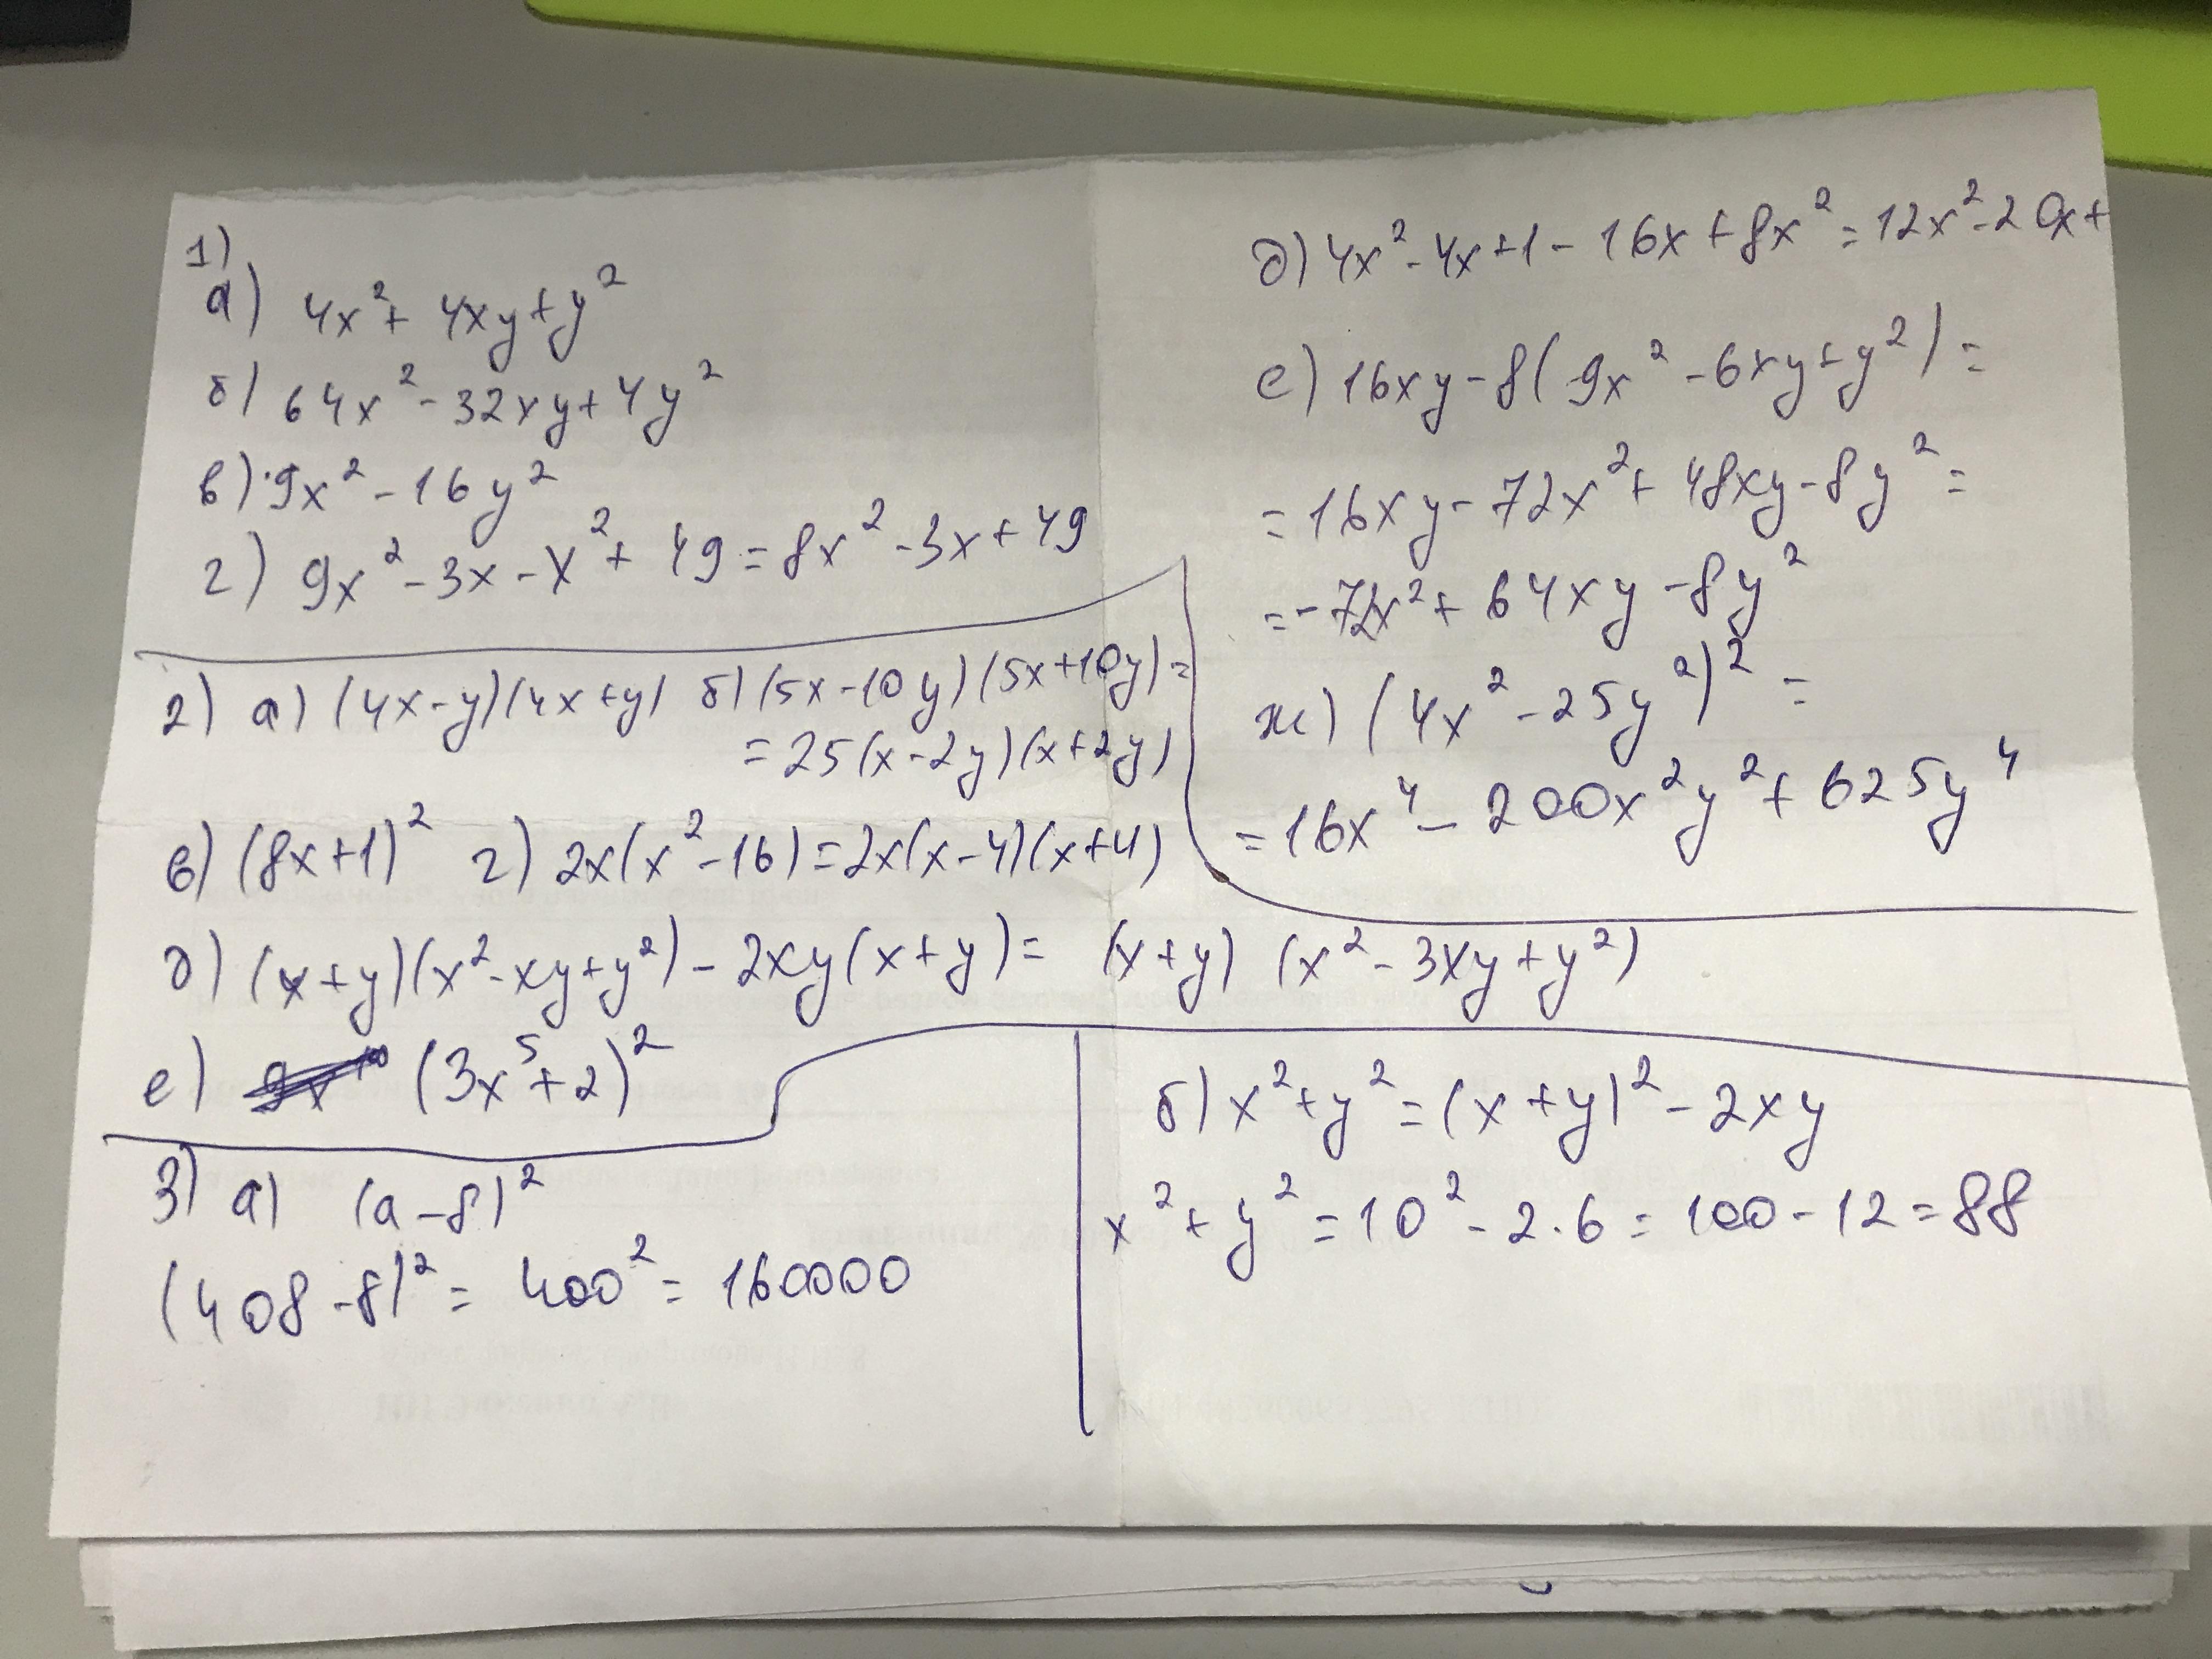 1)
а) 4x² + 4xy + y²
б) 64x² - 32xy + 4y²
в) 9x² - 16y²
г) 9x² - 3x - x² + 49 = 8x² - 3x + 49
д) 4x² - 4x + 1 - 16x + 8x² = 12x² - 20x +
е) 16xy - 8(9x² - 6xy + y²) =
= 16xy - 72x² + 48xy - 8y² =
= -72x² + 64xy - 8y²
ж) (4x² - 25y²)² =
= 16x⁴ - 200x²y² + 625y⁴
2) а) (4x - y)(4x + y) б) (5x - 10y)(5x + 10y) =
= 25(x - 2y)(x + 2y)
в) (8x + 1)² г) 2x(x² - 16) = 2x(x - 4)(x + 4)
д) (x + y)(x² - xy + y²) - 2xy(x + y) = (x + y) (x² - 3xy + y²)
е) (3x⁵ + 2)²
3) а) (a - 8)²
(408 - 8)² = 400² = 160000
б) x² + y² = (x + y)² - 2xy
x² + y² = 10² - 2·6 = 100 - 12 = 88